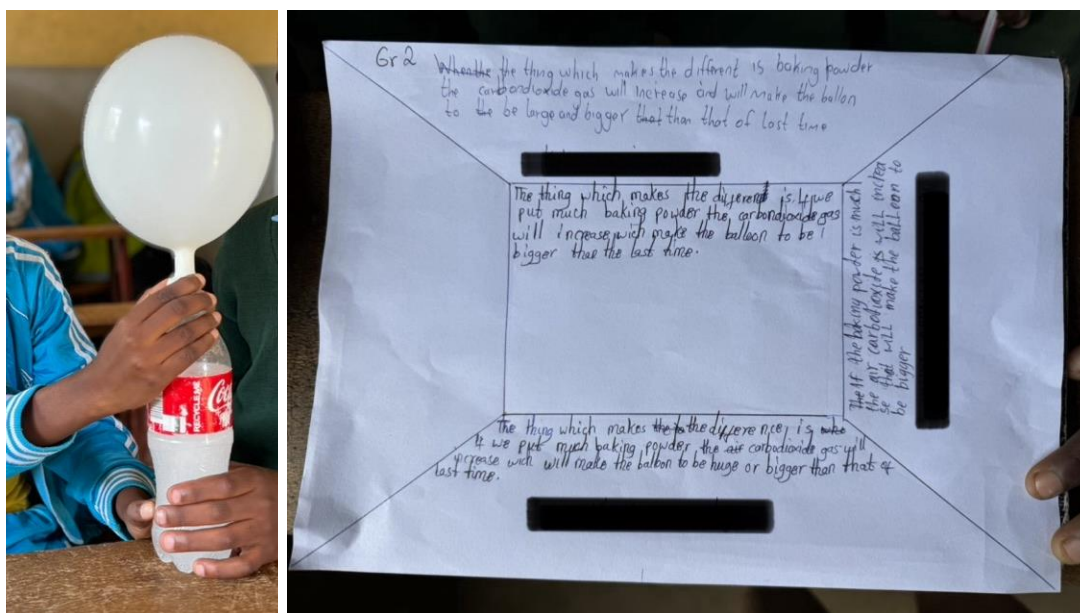 Gr 2
Whenthe the thing which makes the different is baking powder
the carbondioxide gas will increase and will make the ballon
to the be large and bigger that than that of last time
The thing which makes the different is if we
put much baking powder the carbondioxide gas
will increase wich make the balloon to be
bigger than the last time.
The If the baking powder is much
the air carbodioxide is will increa
se that will make the balloon to
be bigger
The thing which makes the to the difference is who
if we put much baking powder the air carbodioxide gas will
increase wich will make the balloon to be huge or bigger than that of
last time.
RECYCLE ME
Coca